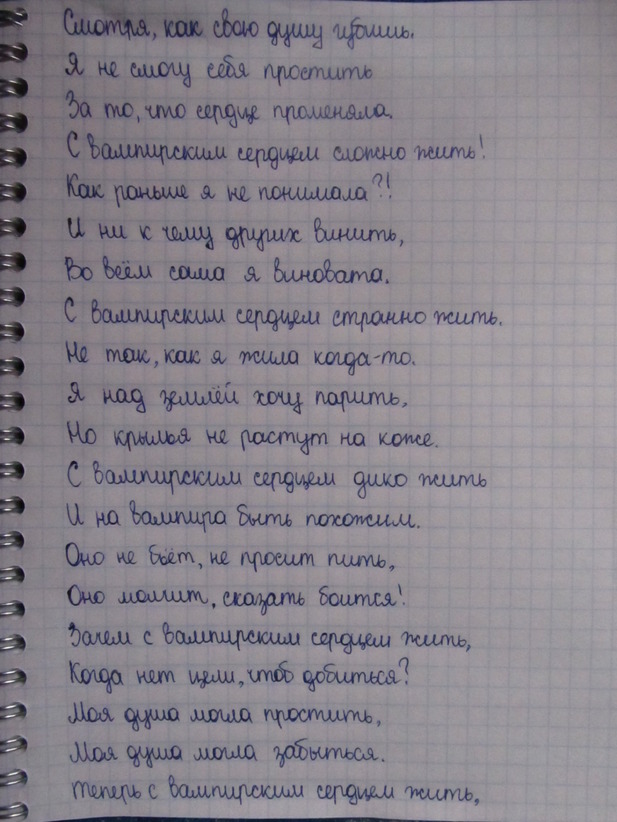 Смотря, как свою душу губишь.
Я не смогу себя простить
За то, что сердце променяла.
С вампирским сердцем сложно жить!
Как раньше я не понимала?!
И ни к чему других винить,
Во всём сама я виновата.
С вампирским сердцем странно жить.
Не так, как я жила когда-то.
Я над землёй хочу парить,
Но крылья не растут на коже.
С вампирским сердцем дико жить
И на вампира быть похожим.
Оно не бьёт, не просит пить,
Оно молчит, сказать боится!
Зачем с вампирским сердцем жить,
Когда нет цели, чтоб добиться?
Моя душа могла простить,
Моя душа могла забыться.
Теперь с вампирским сердцем жить,